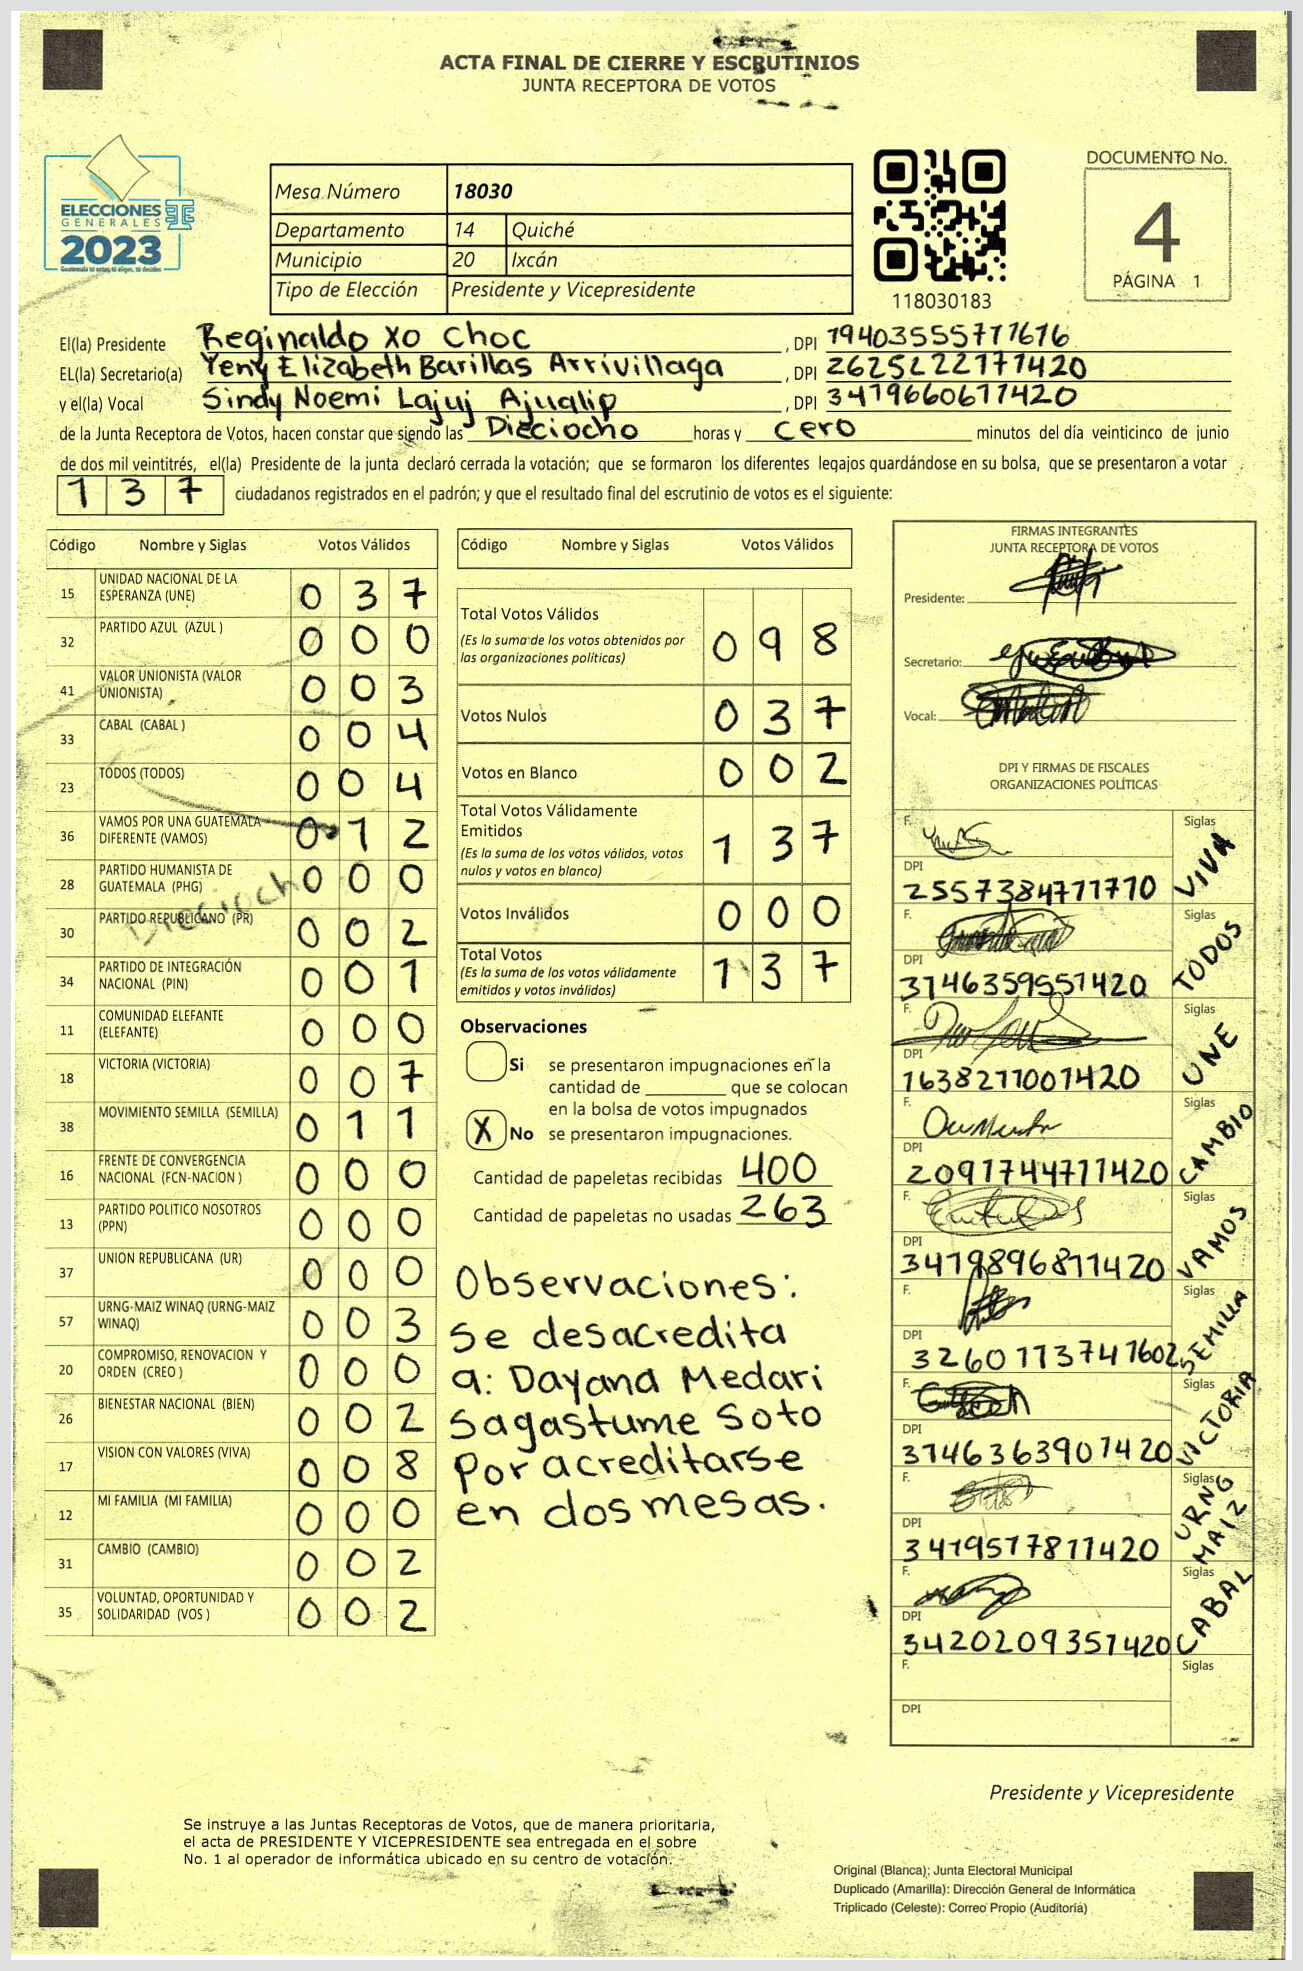 ACTA FINAL DE CIERRE Y ESCRUTINIOS
JUNTA RECEPTORA DE VOTOS
ELECCIONES
GENERALES
2023
Mesa Número 18030
Departamento 14 Quiché
Municipio 20 Ixcán
Tipo de Elección Presidente y Vicepresidente
118030183
DOCUMENTO No.
4
PÁGINA 1
El(la) Presidente Reginaldo Xo Choc, DPI 1940355571616
EL(la) Secretario(a) Yeny Elizabeth Barillas Arrivillaga, DPI 2625222171420
y el(la) Vocal Sindy Noemi Lajuj Ajualip, DPI 3419660671420
de la Junta Receptora de Votos, hacen constar que siendo las Dieciocho horas y cero minutos del día veinticinco de junio
de dos mil veintitrés, el(la) Presidente de la junta declaró cerrada la votación; que se formaron los diferentes legajos guardándose en su bolsa, que se presentaron a votar
137 ciudadanos registrados en el padrón; y que el resultado final del escrutinio de votos es el siguiente:
Código Nombre y Siglas Votos Válidos
15 UNIDAD NACIONAL DE LA ESPERANZA (UNE) 037
32 PARTIDO AZUL (AZUL ) 000
41 VALOR UNIONISTA (VALOR UNIONISTA) 003
33 CABAL (CABAL ) 004
23 TODOS (TODOS) 004
36 VAMOS POR UNA GUATEMALA DIFERENTE (VAMOS) 012
28 PARTIDO HUMANISTA DE GUATEMALA (PHG) 000
Dieciocho
30 PARTIDO REPUBLICANO (PR) 002
34 PARTIDO DE INTEGRACIÓN NACIONAL (PIN) 001
11 COMUNIDAD ELEFANTE (ELEFANTE) 000
18 VICTORIA (VICTORIA) 007
38 MOVIMIENTO SEMILLA (SEMILLA) 011
16 FRENTE DE CONVERGENCIA NACIONAL (FCN-NACION ) 000
13 PARTIDO POLITICO NOSOTROS (PPN) 000
37 UNION REPUBLICANA (UR) 000
57 URNG-MAIZ WINAQ (URNG-MAIZ WINAQ) 003
20 COMPROMISO, RENOVACION Y ORDEN (CREO ) 000
26 BIENESTAR NACIONAL (BIEN) 002
17 VISION CON VALORES (VIVA) 008
12 MI FAMILIA (MI FAMILIA) 000
31 CAMBIO (CAMBIO) 002
35 VOLUNTAD, OPORTUNIDAD Y SOLIDARIDAD (VOS ) 002
Código Nombre y Siglas Votos Válidos
Total Votos Válidos 098
(Es la suma de los votos obtenidos por
las organizaciones políticas)
Votos Nulos 037
Votos en Blanco 002
Total Votos Válidamente
Emitidos 137
(Es la suma de los votos válidos, votos
nulos y votos en blanco)
Votos Inválidos 000
Total Votos 137
(Es la suma de los votos válidamente
emitidos y votos inválidos)
Observaciones
Si se presentaron impugnaciones en la
cantidad de ________ que se colocan
en la bolsa de votos impugnados
X No se presentaron impugnaciones.
Cantidad de papeletas recibidas 400
Cantidad de papeletas no usadas 263
Observaciones:
Se desacredita
a: Dayana Medari
Sagastume Soto
Por acreditarse
en dos mesas.
FIRMAS INTEGRANTES
JUNTA RECEPTORA DE VOTOS
Presidente:
Secretario:
Vocal:
DPI Y FIRMAS DE FISCALES
ORGANIZACIONES POLÍTICAS
F. Siglas VIVA
DPI 2557384771710
F. Siglas TODOS
DPI 3146359551420
F. Siglas UNE
DPI 1638211001420
F. Siglas CAMBIO
DPI 2091744711420
F. Siglas VAMOS
DPI 3419896811420
F. Siglas SEMILLA
DPI 3260113741602
F. Siglas VICTORIA
DPI 3146363901420
F. Siglas URNG MAIZ
DPI 3419517811420
F. Siglas CABAL
DPI 3420209351420
F. Siglas
DPI
Presidente y Vicepresidente
Se instruye a las Juntas Receptoras de Votos, que de manera prioritaria,
el acta de PRESIDENTE Y VICEPRESIDENTE sea entregada en el sobre
No. 1 al operador de informática ubicado en su centro de votación.
Original (Blanca): Junta Electoral Municipal
Duplicado (Amarilla): Dirección General de Informática
Triplicado (Celeste): Correo Propio (Auditoría)